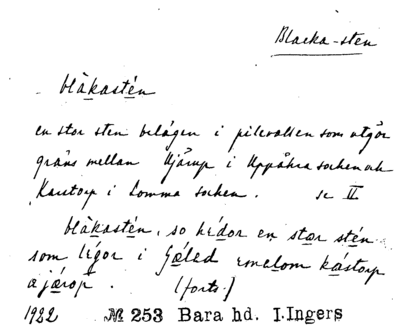 Blacka-sten
blàkastén
en stor sten belägen i pilevallen som utgör
gräns mellan Hjärup i Uppåkra socken och
Karstorp i Lomma socken. se II
blàkastén, so hedor en stær stén
som ligor i jæled emelom kástorp
a järöp. (forts.)
1922 № 253 Bara hd. I. Ingers